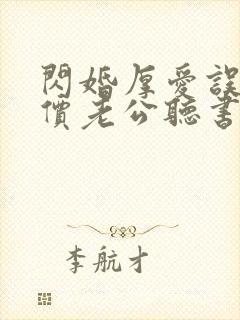 閃婚厚愛誤
價老公聽書
李航才